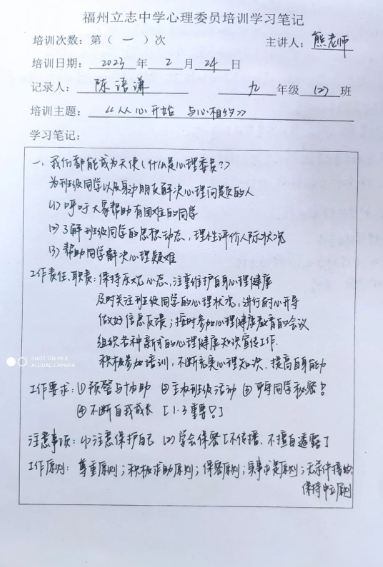 福州立志中学心理委员培训学习笔记
培训次数：第（一）次 主讲人：熊老师
培训日期：2023 年 2 月 24 日
记录人：陈语谦 九 年级 (2) 班
培训主题：《从心开始 与心相约》
学习笔记：
一、我们都能成为天使（什么是心理委员？）
为班级同学以及身边朋友解决心理问题的人
(1) 呼吁大家帮助有困难的同学
(2) 了解班级同学的思想动态、理性评价人际状况
(3) 帮助同学解决心理疑难
工作责任、职责：保持 心态、注意维护自身心理健康
及时关注班级同学的心理状况，进行耐心开导
做好信息反馈；按时参加心理健康教育的会议
组织各种形式的心理健康知识宣传工作
积极参加培训，不断充实心理知识、提高自身能力
工作要求：① 预警与协助 ② 主权班级活动 ③ 同学秘密？
④ 不断自我成长 [1·3重要？]
注意事项：(1) 注意保护自己 (2) 学会保密 [不传播、不擅自透露]
工作原则：尊重原则；积极求助原则；保密原则；实事求是原则；无条件接纳
保持中立原则